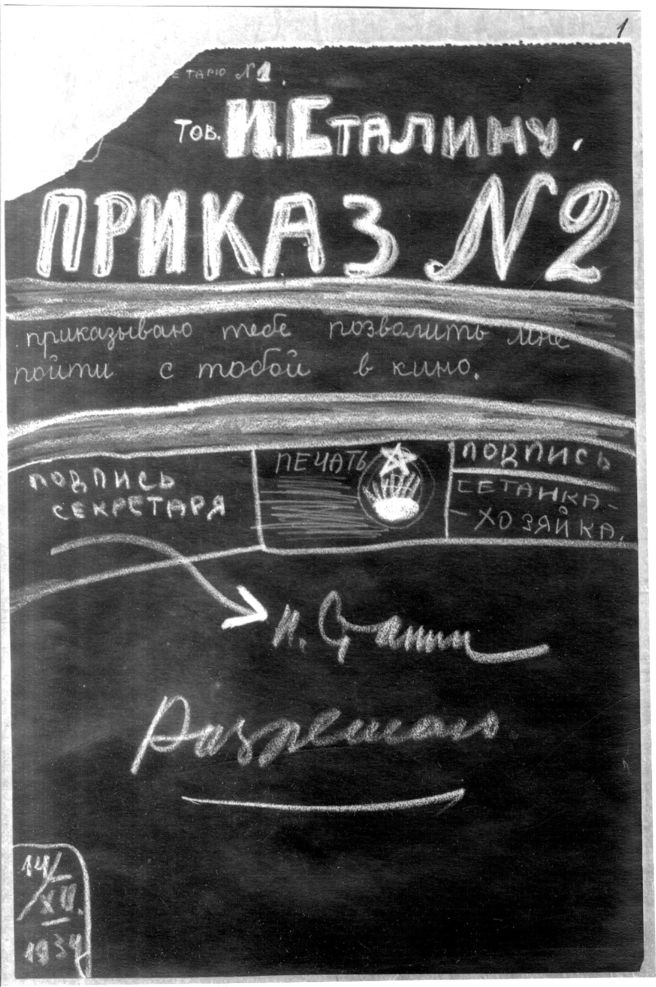 1
ЕТАРЮ №1.
ТОВ. И. СТАЛИНУ.
ПРИКАЗ №2
приказываю тебе позволить мне
пойти с тобой в кино.
ПОДПИСЬ
СЕКРЕТАРЯ
ПЕЧАТЬ
ПОДПИСЬ
СЕТАНКА-
-ХОЗЯЙКА.
И. Сталин
Разрешаю.
14/
XII.
1934